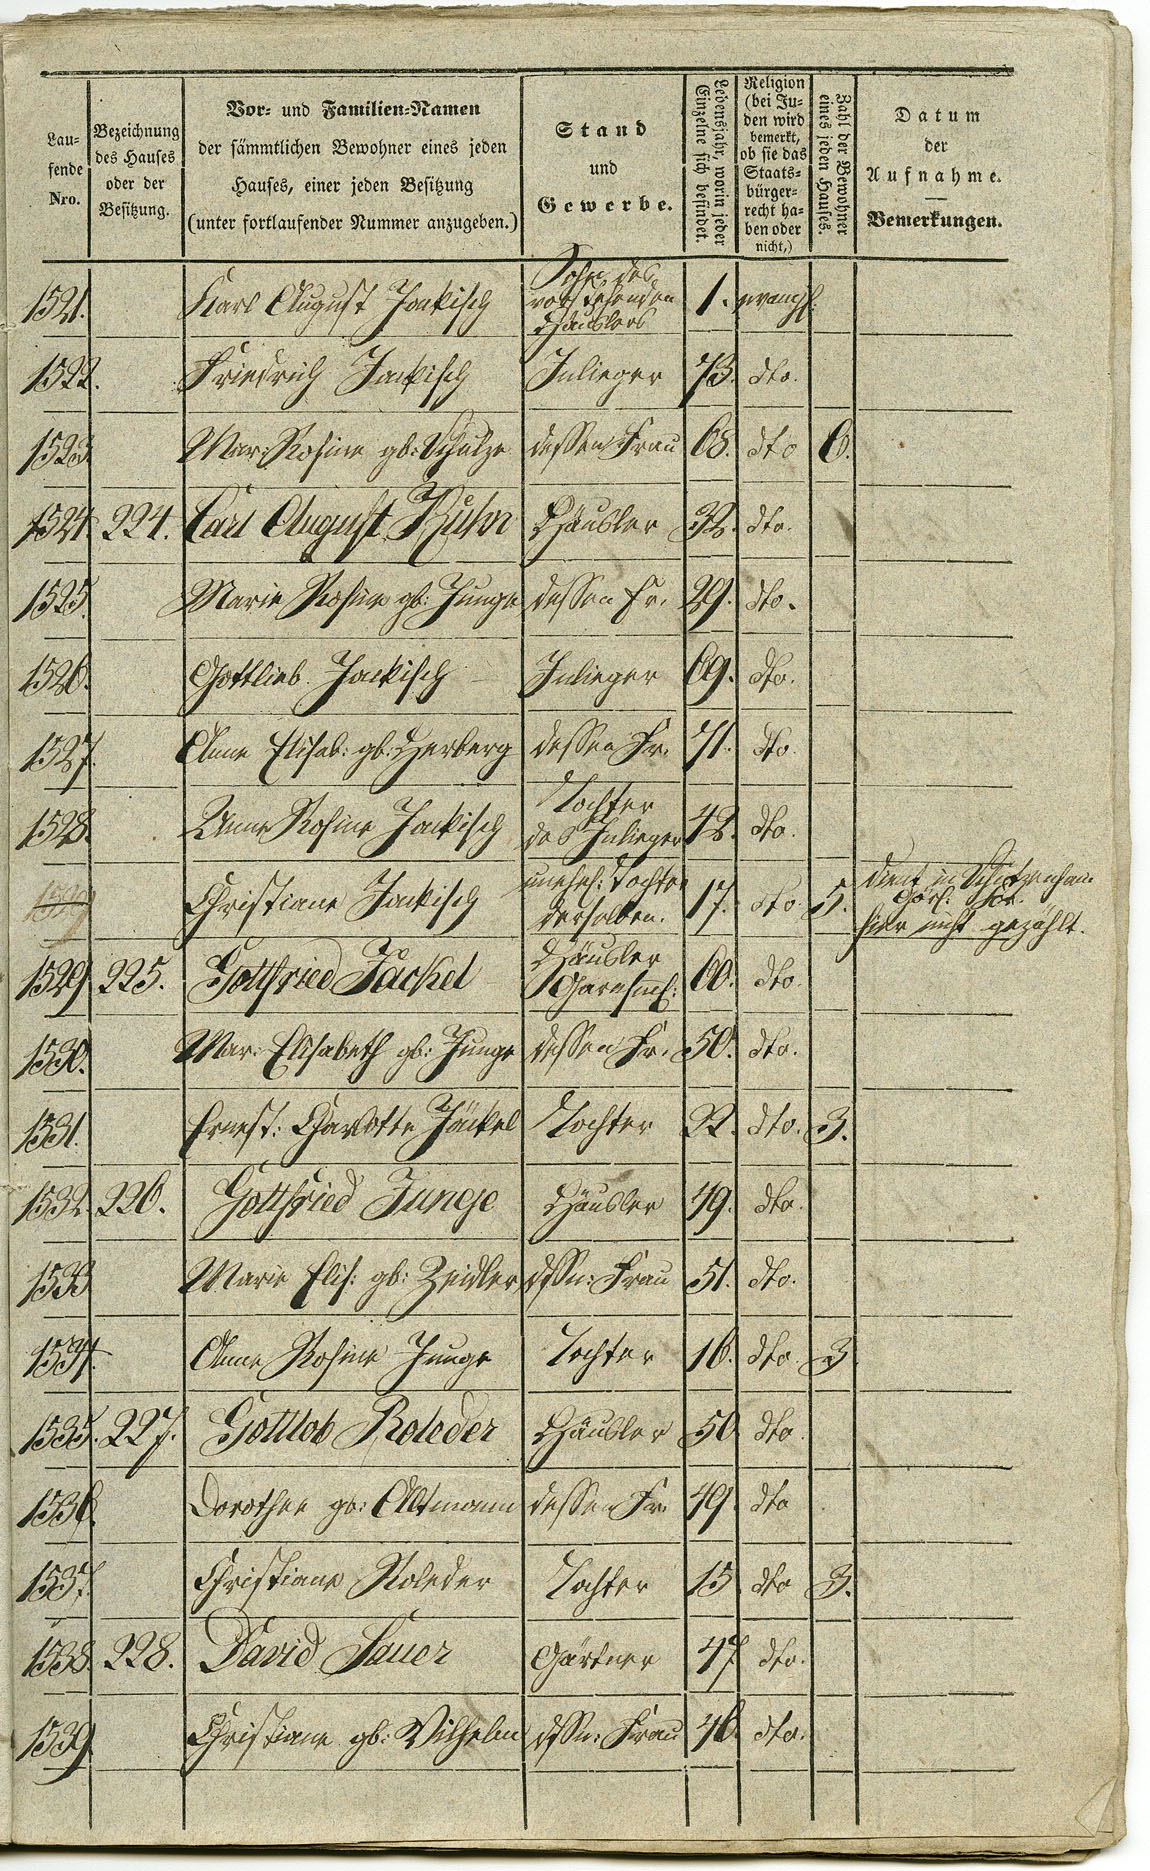 Lau-
fende
Nro.
Bezeichnung
des Hauses
oder der
Besitzung.
Vor- und Familien-Namen
der sämmtlichen Bewohner eines jeden
Hauses, einer jeden Besitzung
(unter fortlaufender Nummer anzugeben.)
Stand
und
Gewerbe.
Lebensjahr, worin jeder
Einzelne sich befindet.
Religion
(bei Ju-
den wird
bemerkt,
ob sie das
Staats-
bürger-
recht ha-
ben oder
nicht,)
Zahl der Bewohner
eines jeden Hauses.
Datum
der
Aufnahme.
Bemerkungen.
Sohn des
vorstehenden
Häuslers
1521. Karl August Jackisch 1. evangl.
1522. Friedrich Jackisch Inlieger 73. dto.
1523. Mar: Rosine gb: Schulze dessen Frau 68. dto 6.
1524. 224. Carl August Kuhn Häusler 32. dto.
1525. Marie Rosine gb: Junge dessen Fr. 29. dto.
1526. Gottlieb Jackisch Inlieger 69. dto.
1527. Anne Elisab: gb: Herberg dessen Fr. 71. dto.
Tochter
1528. Anne Rosine Jackisch des Inlieger 42. dto.
unehel: Tochter
1529 Christiane Jackisch derselben. 17. dto. 5.
dient in
hier nicht gezählt.
Häusler
1529. 225. Gottfried Jäckel 60. dto.
1530. Mar: Elisabeth gb: Junge dessen Fr. 50. dto.
1531. Ernest: Charlotte Jäckel Tochter 22. dto. 3.
1532. 226. Gottfried Junge Häusler 49. dto.
1533 Marie Elis: gb: Zeidler dssn: Frau 51. dto.
1534. Anne Rosine Junge Tochter 16. dto. 3
1535. 227. Gottlob Roleder Häusler 50 dto.
1536. Dorothee gb: Altmann dessen Fr. 49. dto
1537. Christiane Roleder Tochter 15 dto 3.
1538. 228. David Sauer Gärtner 47 dto.
1539 Christiane gb: Wilhelm dssn: Frau 46. dto.